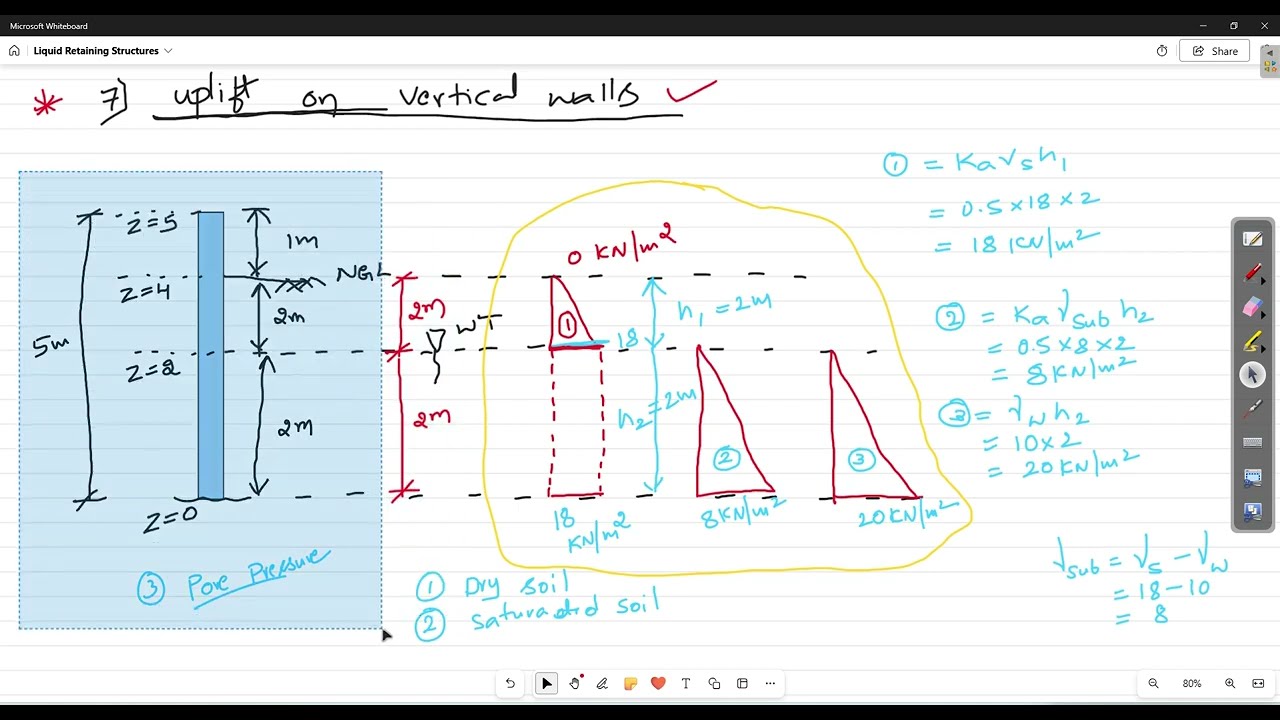 Microsoft Whiteboard
Liquid Retaining Structures
Share
* 7) uplift on vertical walls ✓
z=5
1m
NGL
z=4
2m
5m
z=2
2m
z=0
③ Pore Pressure
2m
WT
2m
0 KN/m²
①
18
h₁ = 2m
h₂ = 2m
②
③
18
KN/m²
8KN/m²
20KN/m²
① Dry soil
② Saturated soil
① = Kaγsh₁
= 0.5×18×2
= 18 KN/m²
② = Kaγsub h₂
= 0.5×8×2
= 8KN/m²
③ = γw h₂
= 10×2
= 20KN/m²
γsub = γs − γw
= 18−10
= 8
80%